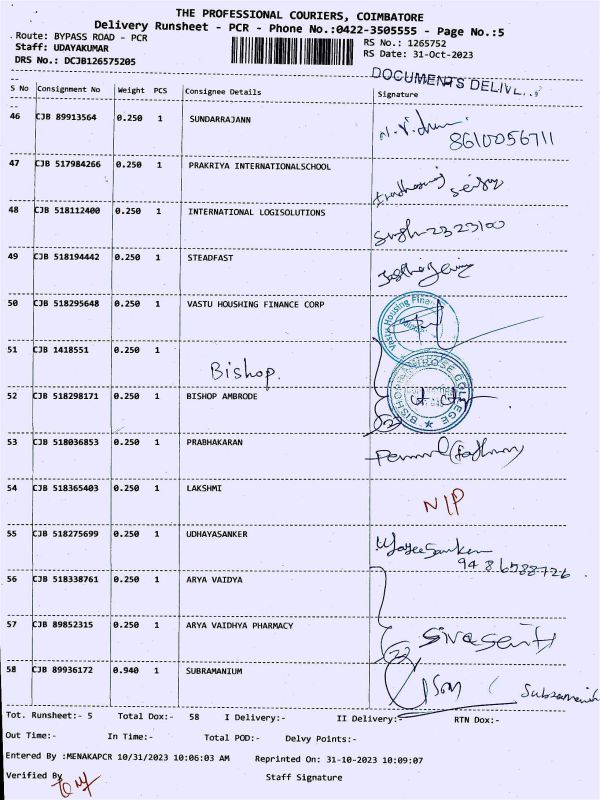 THE PROFESSIONAL COURIERS, COIMBATORE
Delivery Runsheet - PCR - Phone No.:0422-3505555 - Page No.:5
Route: BYPASS ROAD - PCR
RS No.: 1265752
Staff: UDAYAKUMAR
RS Date: 31-Oct-2023
DRS No.: DCJB126575205
DOCUMENTS
S No Consignment No Weight PCS Consignee Details Signature
46 CJB 89913564 0.250 1 SUNDARRAJANN
8610056711
47 CJB 517984266 0.250 1 PRAKRIYA INTERNATIONALSCHOOL
48 CJB 518112400 0.250 1 INTERNATIONAL LOGISOLUTIONS
49 CJB 518194442 0.250 1 STEADFAST
50 CJB 518295648 0.250 1 VASTU HOUSHING FINANCE CORP
Vastu Housing Finan
51 CJB 1418551 0.250 1
Bishop.
BISHOP AMBROSE COLLEGE
52 CJB 518298171 0.250 1 BISHOP AMBRODE
53 CJB 518036853 0.250 1 PRABHAKARAN
54 CJB 518365403 0.250 1 LAKSHMI
N/P
55 CJB 518275699 0.250 1 UDHAYASANKER
9486588726
56 CJB 518338761 0.250 1 ARYA VAIDYA
57 CJB 89852315 0.250 1 ARYA VAIDHYA PHARMACY
58 CJB 89936172 0.940 1 SUBRAMANIUM
Tot. Runsheet:- 5 Total Dox:- 58 I Delivery:- II Delivery:- RTN Dox:-
Out Time:- In Time:- Total POD:- Delvy Points:-
Entered By :MENAKAPCR 10/31/2023 10:06:03 AM Reprinted On: 31-10-2023 10:09:07
Verified By Staff Signature